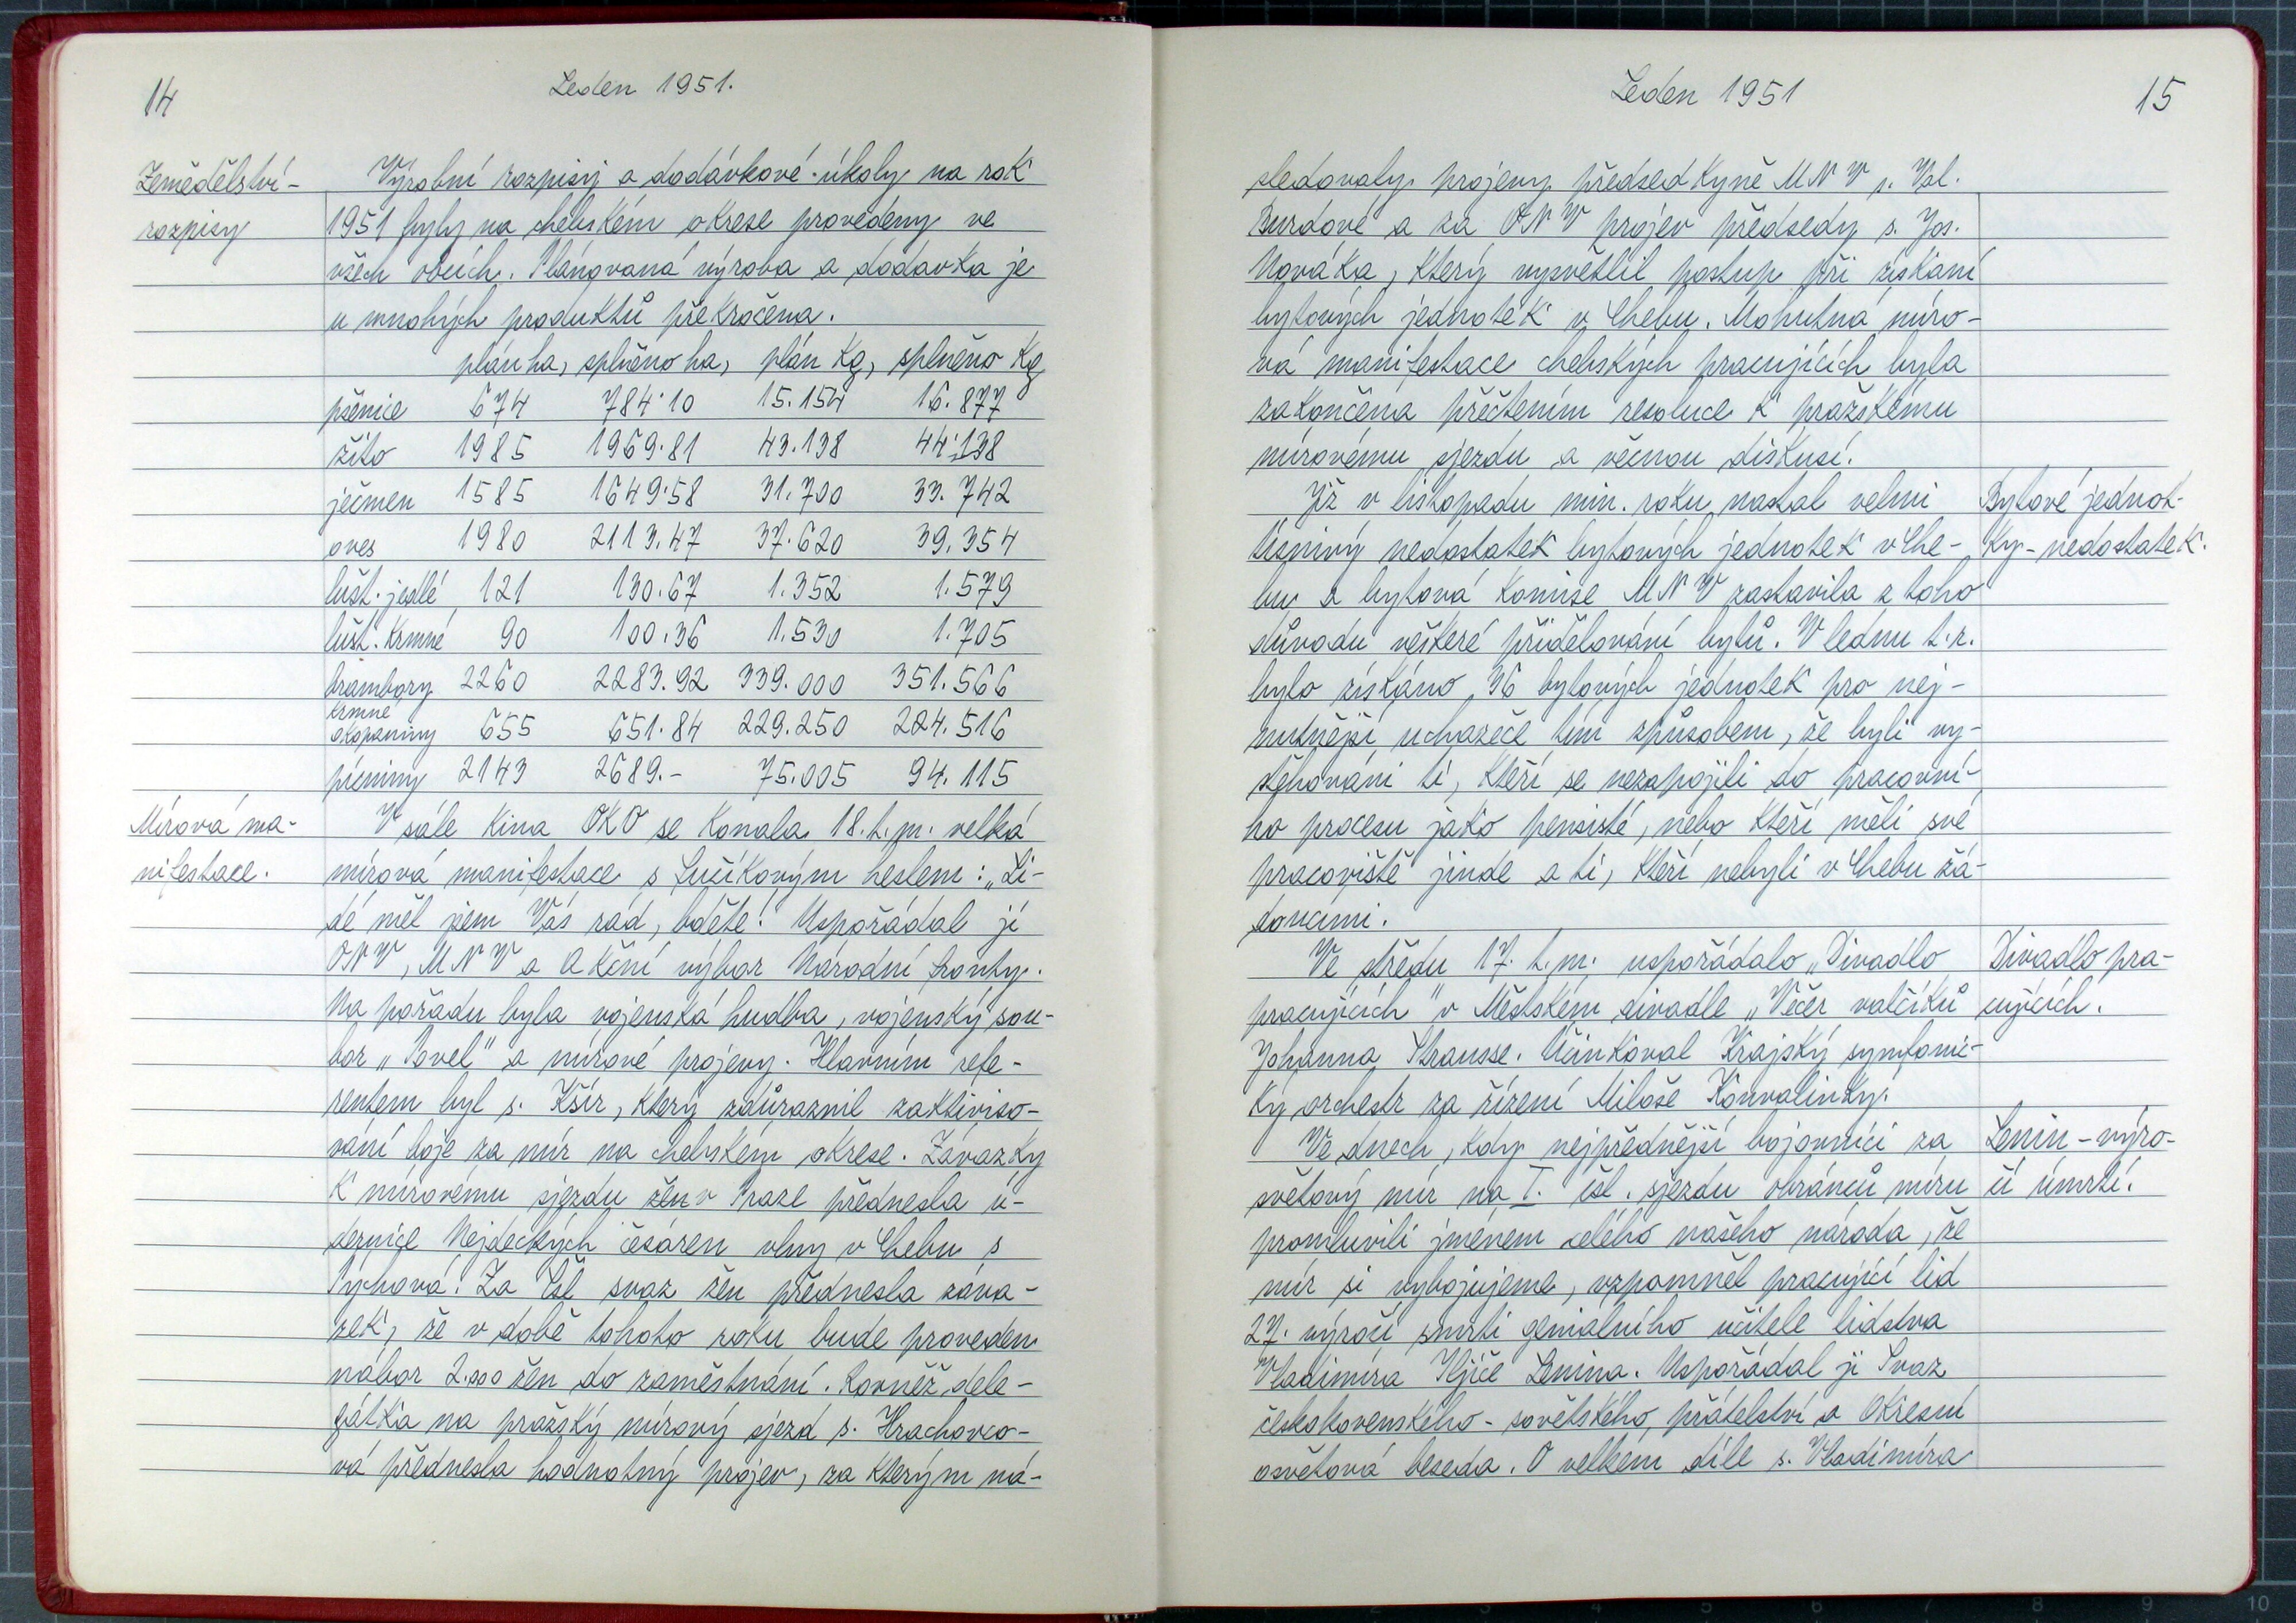 14
Leden 1951.
Zemědělství-
rozpisy
Výrobní rozpisy a dodávkové úkoly na rok
1951 byly na chebském okrese provedeny ve
všech obcích. Plánovaná výroba a dodávka je
u mnohých produktů překročena.
plán ha, splněno ha, plán kg, splněno kg
pšenice 674 784·10 15.154 16.877
žito 1985 1969·81 43.138 44.138
ječmen 1585 1649·58 31.700 33.742
oves 1980 2113.47 37.620 39.354
lušt. jedlé 121 130.67 1.352 1.579
lušt. krmné 90 100.36 1.530 1.705
brambory 2260 2283.92 339.000 351.566
krmné
okopaniny 655 651.84 229.250 224.516
pícniny 2143 2689.- 75.005 94.115
Mírová ma-
nifestace.
V sále kina OKO se konala 18. t. m. velká
mírová manifestace s Fučíkovým heslem: „Li-
dé měl jsem Vás rád, bděte! Uspořádal ji
ONV, MNV a Akční výbor Národní fronty.
Na pořadu byla vojenská hudba, vojenský sou-
bor „Pavel" a mírové projevy. Hlavním refe-
rentem byl s. Kšír, který zdůraznil zaktiviso-
vání boje za mír na chebském okrese. Závazky
k mírovému sjezdu žen v Praze přednesla ú-
dernice Nejdeckých česáren vlny v Chebu s
Pýchová. Za Čsl svaz žen přednesla záva-
zek, že v době tohoto roku bude proveden
nábor 2.000 žen do zaměstnání. Rovněž dele-
gátka na pražský mírový sjezd s. Hrachovco-
vá přednesla hodnotný projev, za kterým ná-
Leden 1951
15
sledovaly projevy předsedkyně MNV s. Val.
Burdové a za ONV projev předsedy s. Jos.
Nováka, který vysvětlil postup při získání
bytových jednotek v Chebu. Mohutná míro-
vá manifestace chebských pracujících byla
zakončena přečtením resoluce k pražskému
mírovému sjezdu a věcnou diskusí.
Již v listopadu min. roku nastal velmi
tísnivý nedostatek bytových jednotek v Che-
bu a bytová komise MNV zastavila z toho
důvodu veškeré přidělování bytů. V lednu t. r.
bylo získáno 36 bytových jednotek pro nej-
nutnější uchazeče tím způsobem, že byli vy-
stěhováni ti, kteří se nezapojili do pracovní-
ho procesu jako pensisté, nebo kteří měli své
pracoviště jinde a ti, kteří nebyli v Chebu žá-
doucími.
Bytové jednot-
ky - nedostatek.
Ve středu 17. t. m. uspořádalo „Divadlo
pracujících" v Městském divadle „Večer valčíků
Johanna Strausse. Účinkoval Krajský symfonic-
ký orchestr za řízení Miloše Konvalinky.
Divadlo pra-
cujících.
Ve dnech, kdy nejpřednější bojovníci za
světový mír na I. čsl. sjezdu obránců míru
promluvili jménem celého našeho národa, že
mír si vybojujeme, vzpomněl pracující lid
27. výročí smrti geniálního učitele lidstva
Vladimíra Iljiče Lenina. Uspořádal ji Svaz
československého - sovětského přátelství a Okresní
osvětová beseda. O velkém díle s. Vladimíra
Lenin - výro-
čí úmrtí.